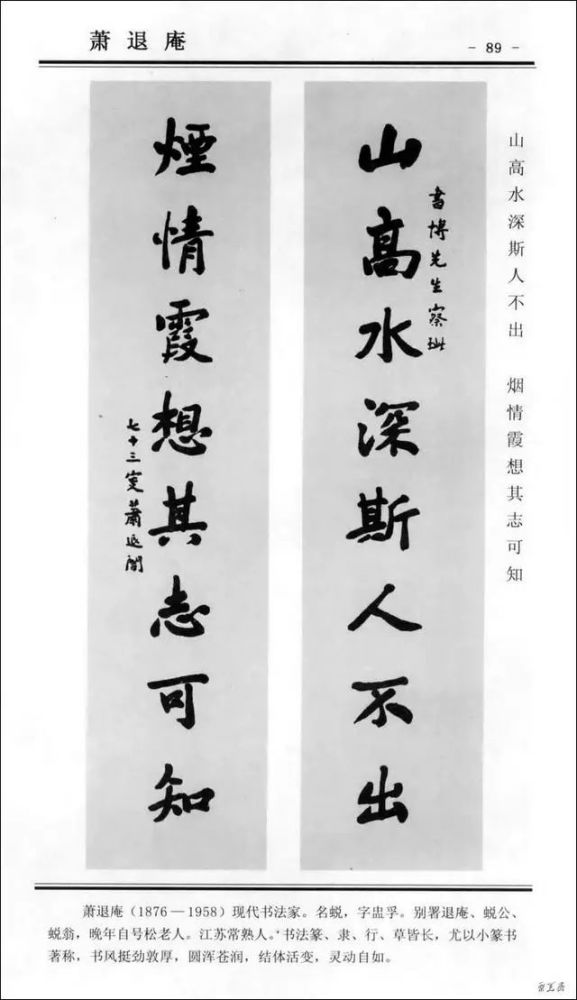 萧退庵
- 89 -
山高水深斯人不出 烟情霞想其志可知
山高水深斯人不出
書博先生察
煙情霞想其志可知
七十三叟蕭退闇
萧退庵（1876—1958）现代书法家。名蜕，字盅孚。别署退庵、蜕公、
蜕翁，晚年自号松老人。江苏常熟人。书法篆、隶、行、草皆长，尤以小篆书
著称，书风挺劲敦厚，圆浑苍润，结体活变，灵动自如。